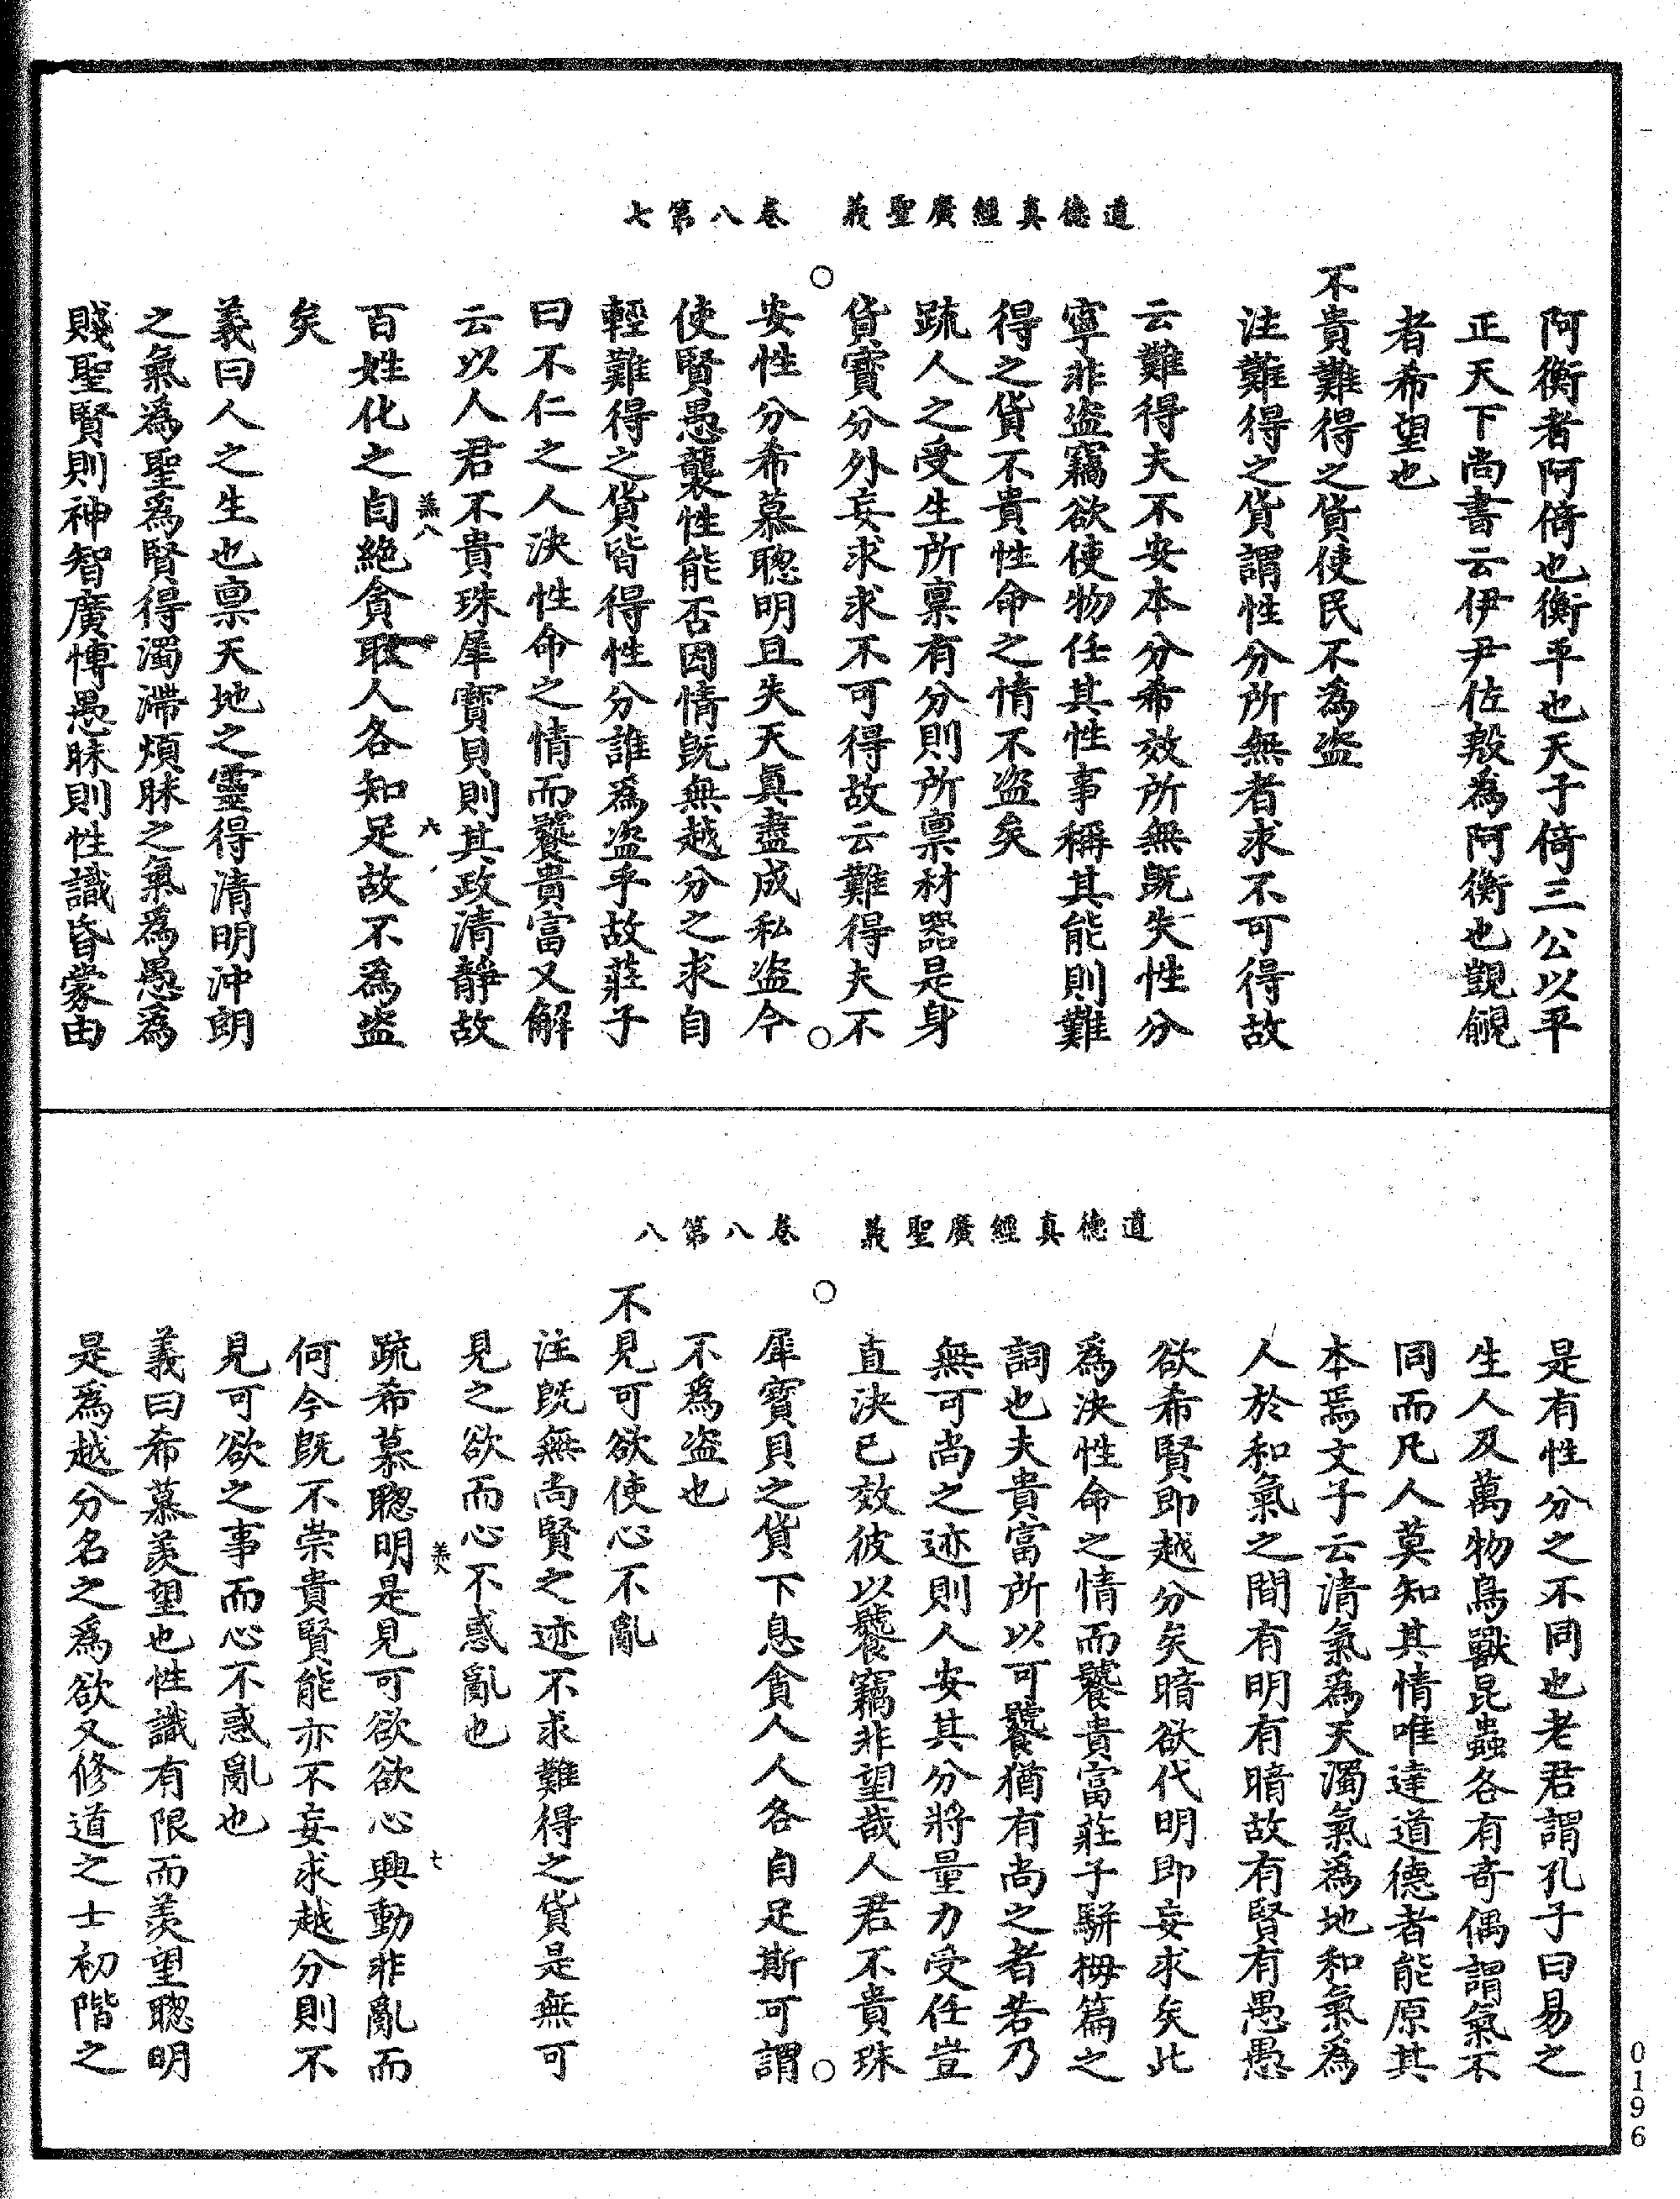 道德真經廣聖義　卷八第七
阿衡者阿倚也衡平也天子倚三公以平
正天下尚書云伊尹佐殷為阿衡也覬覦
者希望也
不貴難得之貨使民不為盜
注難得之貨謂性分所無者求不可得故
云難得夫不安本分希效所無既失性分
寧非盜竊欲使物任其性事稱其能則難
得之貨不貴性命之情不盜矣
疏人之受生所稟有分則所稟材器是身
貨寶分外妄求求不可得故云難得夫不
安性分希慕聰明且失天真盡成私盜今
使賢愚襲性能否因情既無越分之求自
輕難得之貨皆得性分誰為盜乎故莊子
曰不仁之人決性命之情而饕貴富又解
云以人君不貴珠犀寶貝則其政清靜故
羔八　六
百姓化之自絕貪取人各知足故不為盜
矣
義曰人之生也稟天地之靈得清明沖朗
之氣為聖為賢得濁滯煩昧之氣為愚為
賤聖賢則神智廣博愚昧則性識昏蒙由
道德真經廣聖義　卷八第八
是有性分之不同也老君謂孔子曰易之
生人及萬物鳥獸昆蟲各有奇偶謂氣不
同而凡人莫知其情唯達道德者能原其
本焉文子云清氣為天濁氣為地和氣為
人於和氣之間有明有暗故有賢有愚愚
欲希賢即越分矣暗欲代明即妄求矣此
為決性命之情而饕貴富莊子駢拇篇之
詞也夫貴富所以可饕猶有尚之者若乃
無可尚之迹則人安其分將量力受任豈
直決已效彼以饕竊非望哉人君不貴珠
犀寶貝之貨下息貪人人各自足斯可謂
不為盜也
不見可欲使心不亂
注既無尚賢之迹不求難得之貨是無可
見之欲而心不惑亂也
羔八　七
疏希慕聰明是見可欲欲心興動非亂而
何今既不崇貴賢能亦不妄求越分則不
見可欲之事而心不惑亂也
義曰希慕羨望也性識有限而羨望聰明
是為越分名之為欲又修道之士初階之
0196